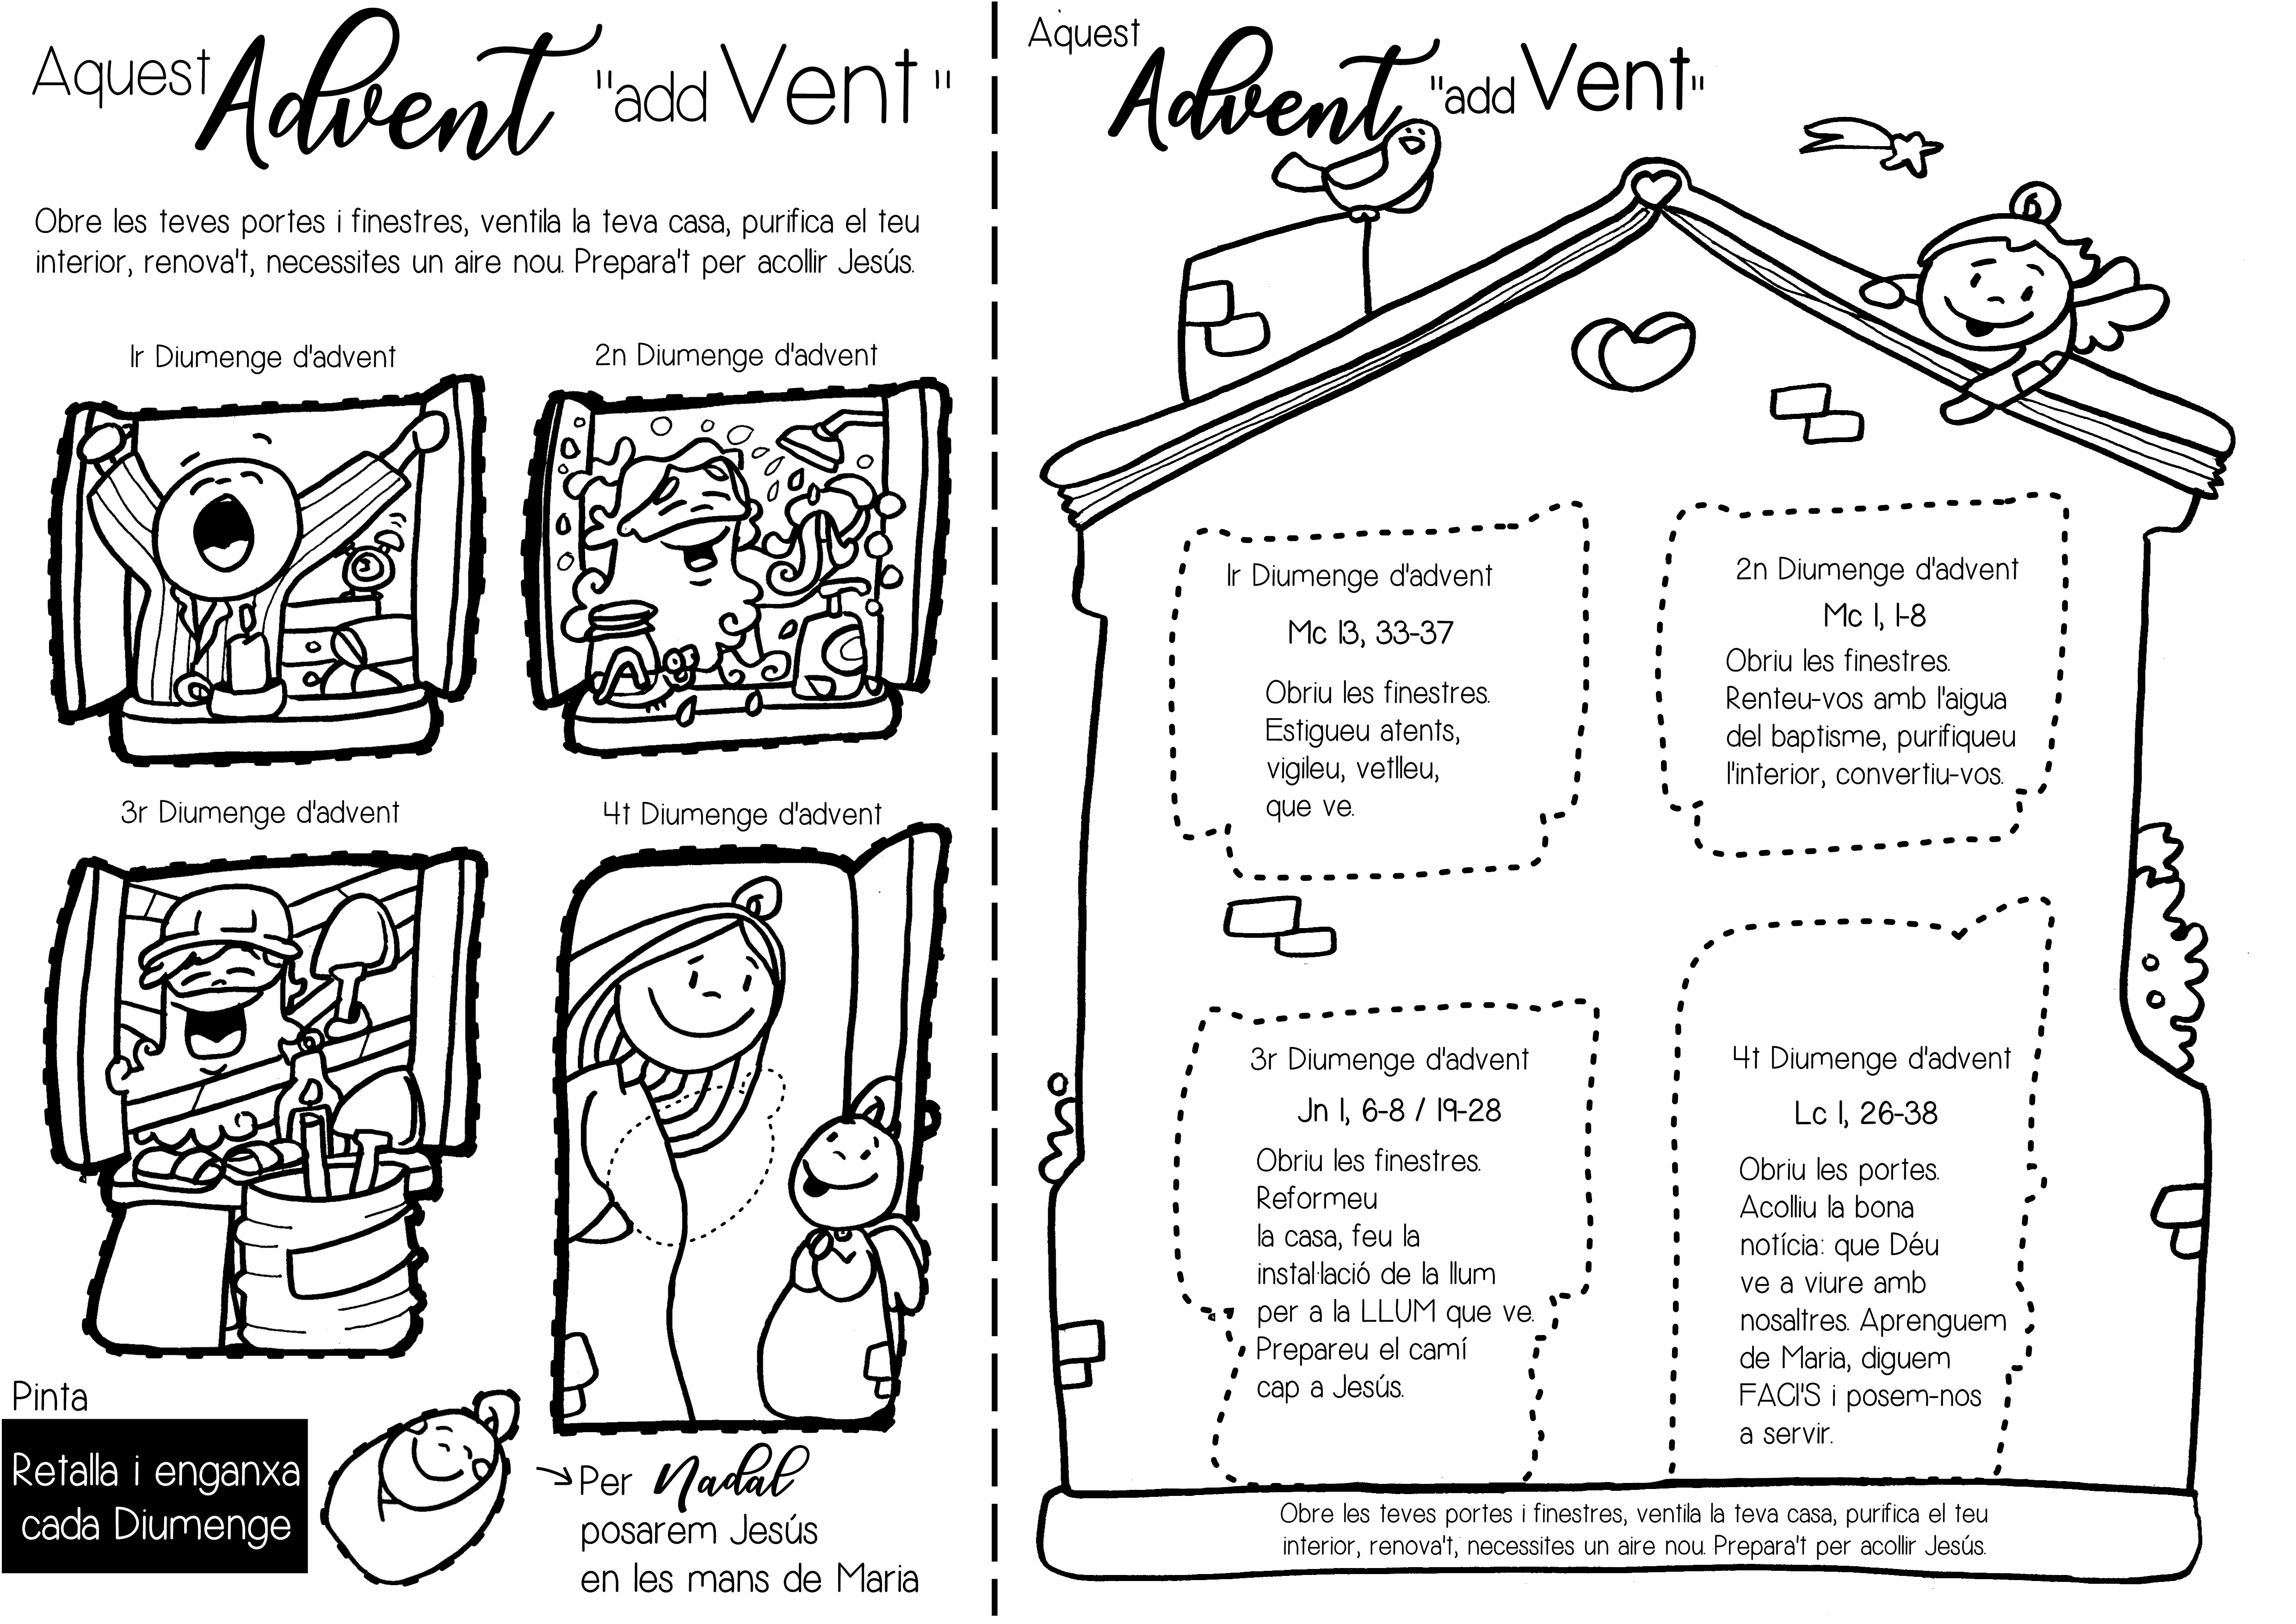 Aquest Advent "add Vent"
Obre les teves portes i finestres, ventila la teva casa, purifica el teu
interior, renova't, necessites un aire nou. Prepara't per acollir Jesús.
1r Diumenge d'advent
2n Diumenge d'advent
3r Diumenge d'advent
4t Diumenge d'advent
Pinta
Retalla i enganxa
cada Diumenge
Per Nadal
posarem Jesús
en les mans de Maria
Aquest
Advent "add Vent"
1r Diumenge d'advent
Mc 13, 33-37
Obriu les finestres.
Estigueu atents,
vigileu, vetlleu,
que ve.
2n Diumenge d'advent
Mc 1, 1-8
Obriu les finestres.
Renteu-vos amb l'aigua
del baptisme, purifiqueu
l'interior, convertiu-vos.
3r Diumenge d'advent
Jn 1, 6-8 / 19-28
Obriu les finestres.
Reformeu
la casa, feu la
instal·lació de la llum
per a la LLUM que ve.
Prepareu el camí
cap a Jesús.
4t Diumenge d'advent
Lc 1, 26-38
Obriu les portes.
Acolliu la bona
notícia: que Déu
ve a viure amb
nosaltres. Aprenguem
de Maria, diguem
FACI'S i posem-nos
a servir.
Obre les teves portes i finestres, ventila la teva casa, purifica el teu
interior, renova't, necessites un aire nou. Prepara't per acollir Jesús.